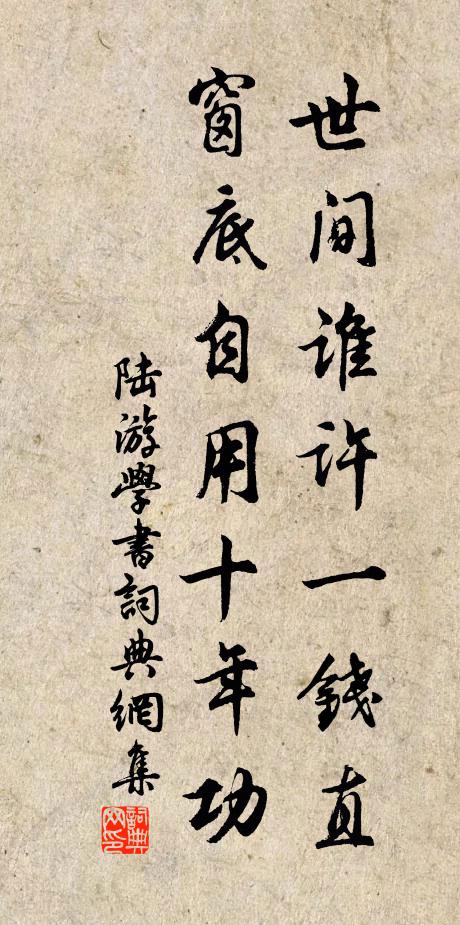 世间谁许一钱直
窗底自用十年功
陆游學書詞典網集
詞典网印